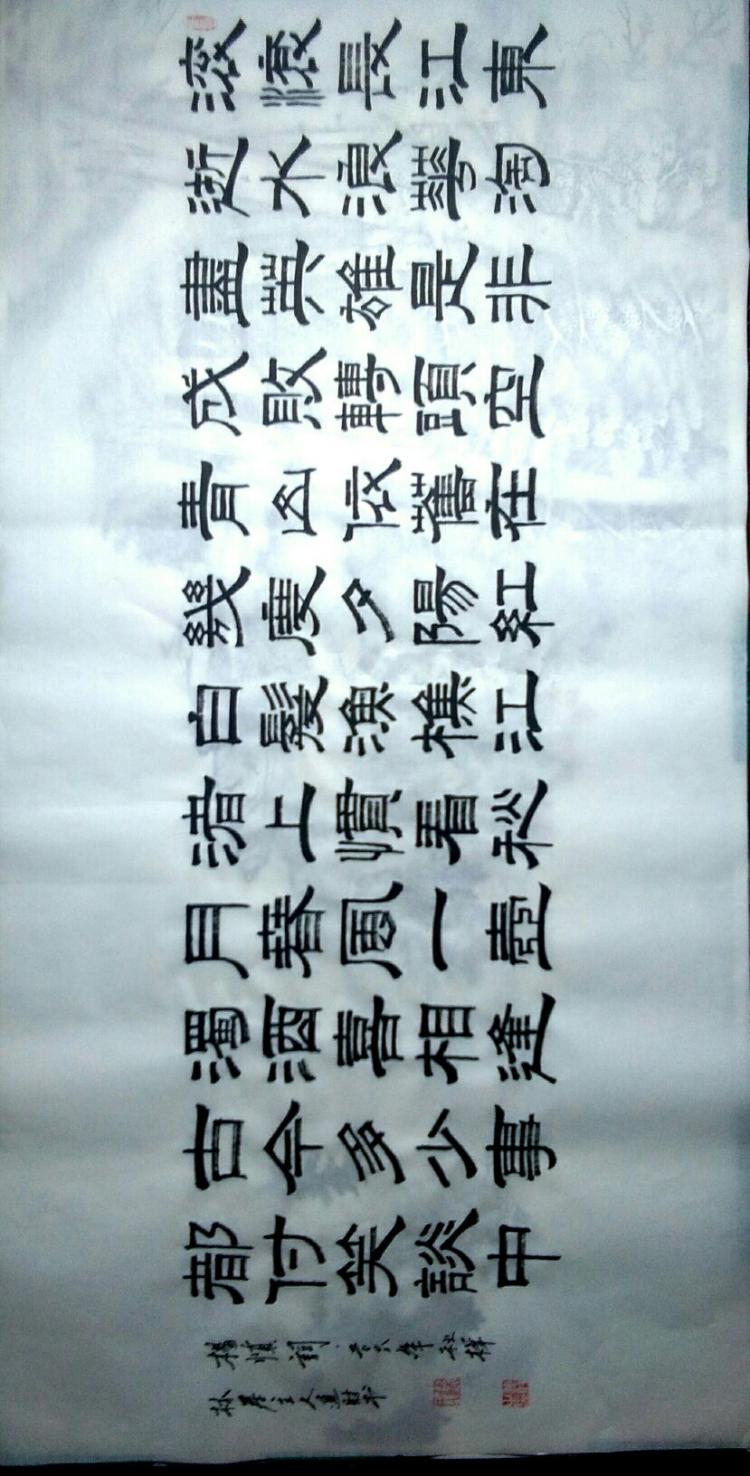 滾滾長江東
逝水浪華淘
盡英雄是非
成敗轉頭空
青山依舊在
幾度夕陽紅
白髮漁樵江
渚上慣看秋
月春風一壺
濁酒喜相逢
古今多少事
都付笑談中
楊慎詞
主人